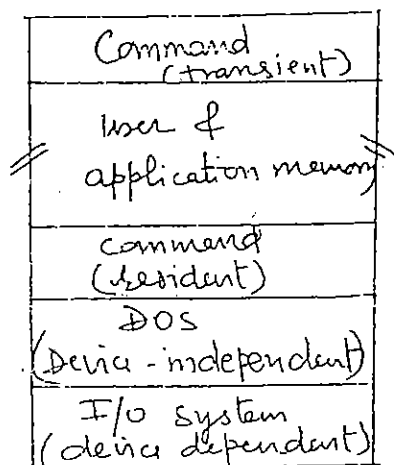 Command
(transient)
User &
application memory
command
(resident)
DOS
(Device-independent)
I/O system
(device dependent)